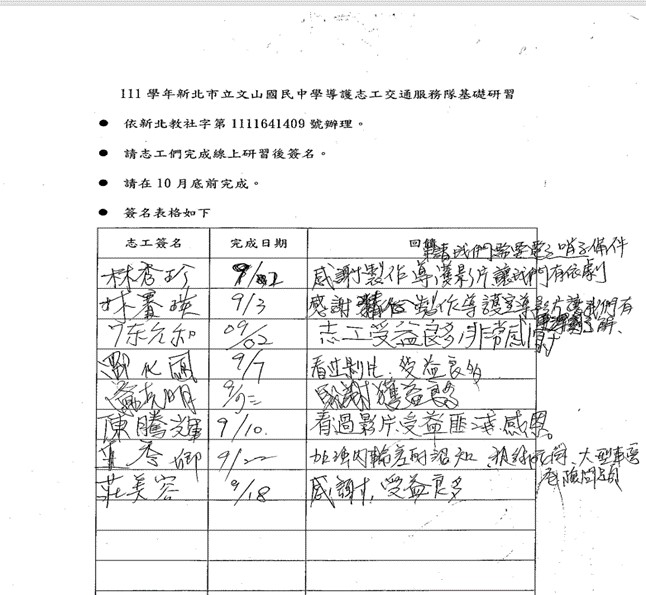 111 學年新北市立文山國民中學導護志工交通服務隊基礎研習
● 依新北教社字第 1111641409 號辦理。
● 請志工們完成線上研習後簽名。
● 請在 10 月底前完成。
● 簽名表格如下
志工簽名 完成日期 回饋
我們需要電子哨子備件
林秀珍 9/02 感謝製作導護影片讓我們有依劇
9/3 感謝 製作導護宣導影片讓我們有
了解、
陳允和 09/02 志工受益良多非常感謝
9/7 看過影片、受益良多
9/ 感謝獲益良多
陳騰輝 9/10 看過影片、受益匪淺、感恩。
秀卿 9/22 加強內輪差的認知、視線死角、大型車
危險
莊美容 9/18 感謝,受益良多